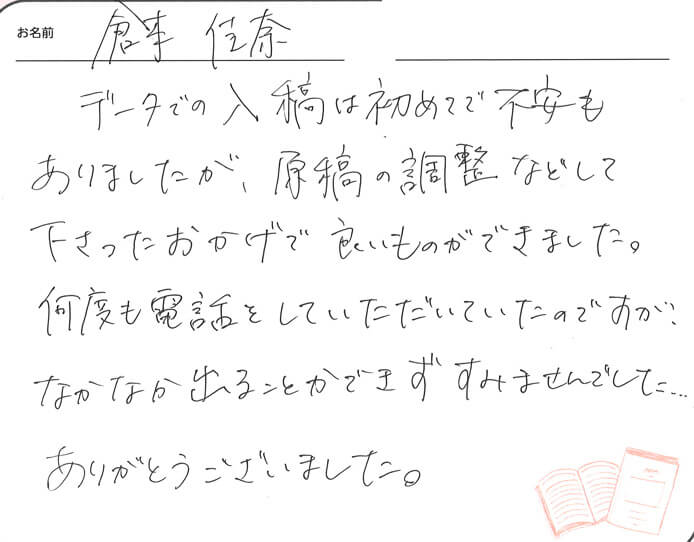 お名前 倉本 佳奈
データでの入稿は初めてで不安も
ありましたが、原稿の調整などして
下さったおかげで良いものができました。
何度も電話をしていただいていたのですが、
なかなか出ることができずすみませんでした…
ありがとうございました。